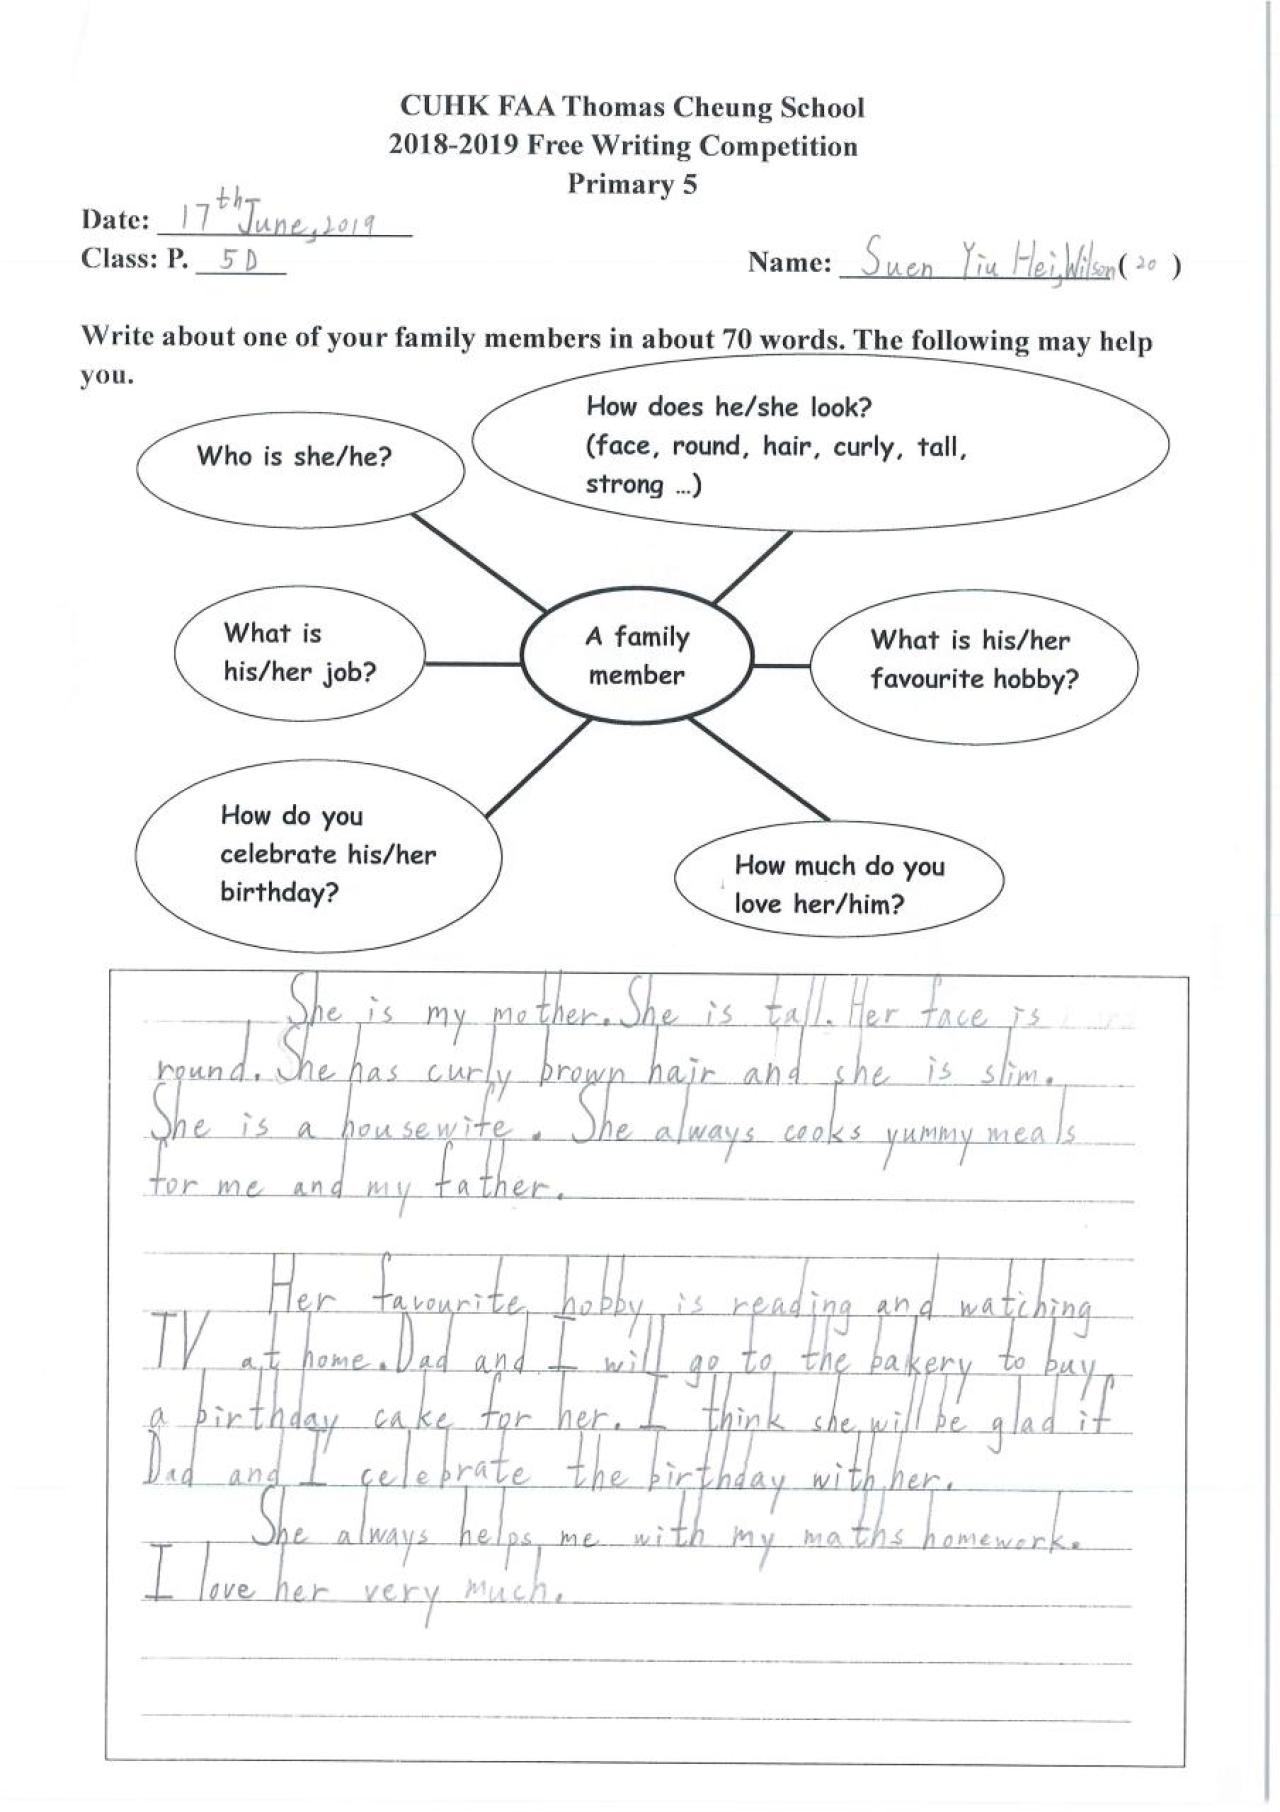 CUHK FAA Thomas Cheung School
2018-2019 Free Writing Competition
Primary 5
Date: 17th June, 2019
Class: P. 5D
Name: Suen Yiu Hei, Wilson ( 20 )
Write about one of your family members in about 70 words. The following may help
you.
How does he/she look?
(face, round, hair, curly, tall,
strong ...)
Who is she/he?
What is
his/her job?
A family
member
What is his/her
favourite hobby?
How do you
celebrate his/her
birthday?
How much do you
love her/him?
She is my mother. She is tall. Her face is
round. She has curly brown hair and she is slim.
She is a housewife. She always cooks yummy meals
for me and my father.
Her favourite hobby is reading and watching
TV at home. Dad and I will go to the bakery to buy
a birthday cake for her. I think she will be glad if
Dad and I celebrate the birthday with her.
She always helps me with my maths homework.
I love her very much.